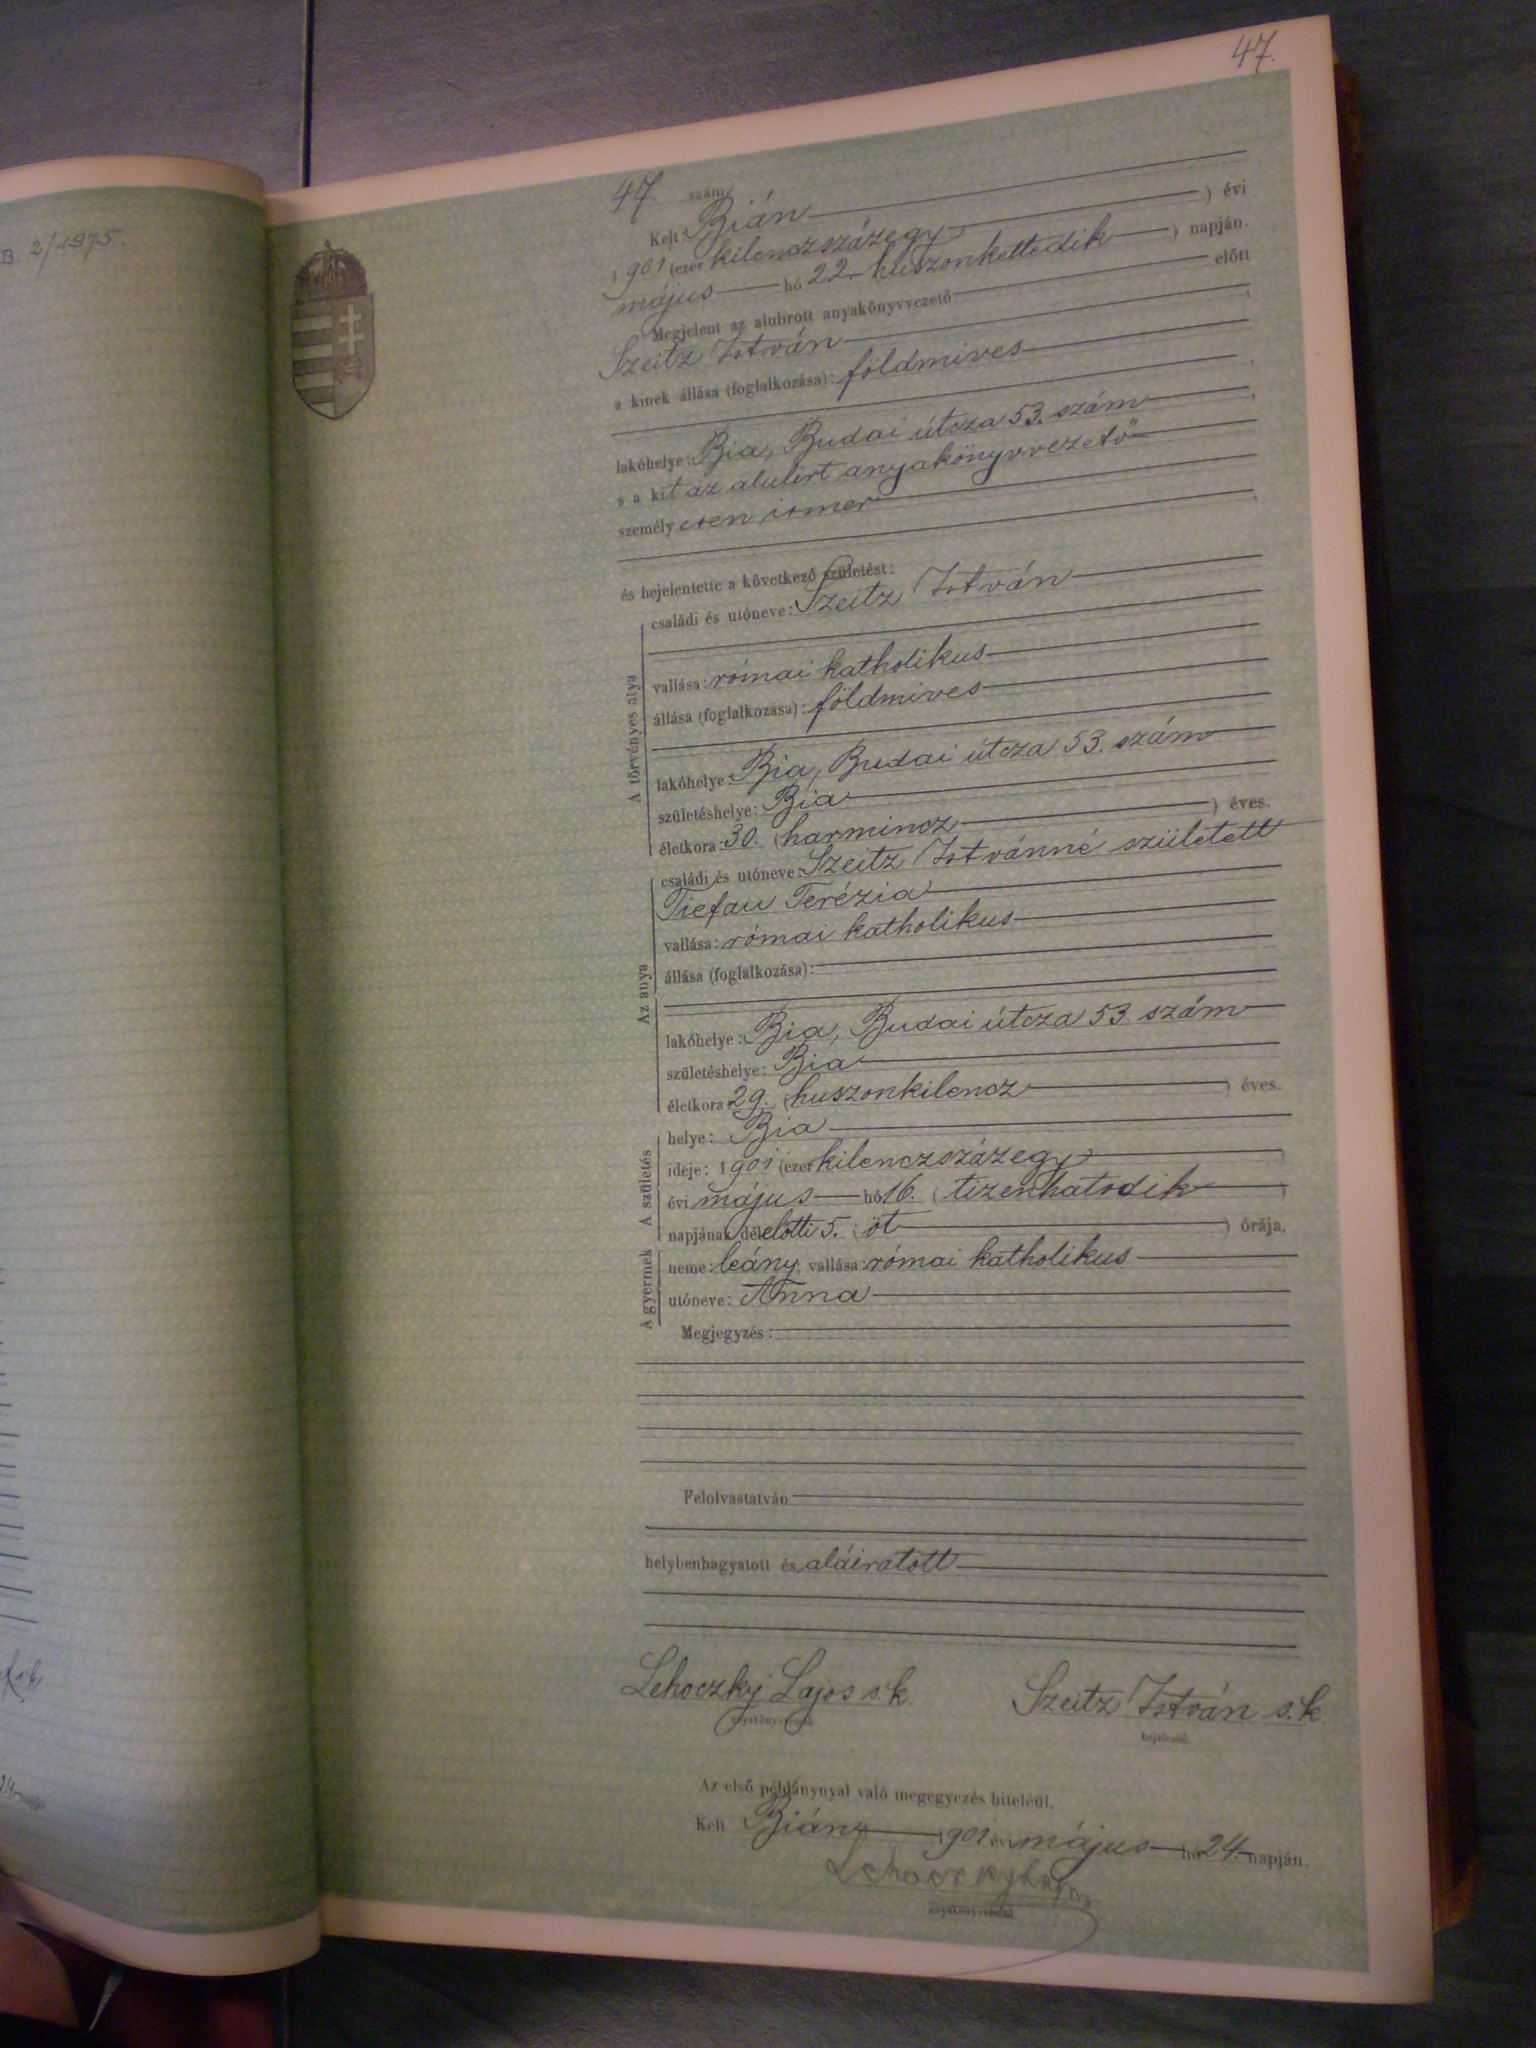 B. 2/1975.
47.
47 szám
Kelt: Bián
1901 (ezer kilenczszázegy ) évi
május hó 22. huszonkettedik ) napján.
Megjelent az alulirott anyakönyvvezető előtt
Szeitz István
a kinek állása (foglalkozása): földmives
lakóhelye: Bia, Budai útcza 53. szám
s a kit az alulirt anyakönyvvezető
személyesen ismer
és bejelentette a következő születést:
A törvényes atya
családi és utóneve: Szeitz István
vallása: római katholikus
állása (foglalkozása): földmives
lakóhelye: Bia, Budai útcza 53. szám
születéshelye: Bia
életkora: 30. (harmincz ) éves.
Az anya
családi és utóneve: Szeitz Istvánné született
Tiefau Terézia
vallása: római katholikus
állása (foglalkozása):
lakóhelye: Bia, Budai útcza 53. szám
születéshelye: Bia
életkora 29. (huszonkilencz ) éves.
A születés
helye: Bia
ideje: 1901 (ezer kilenczszázegy )
évi május hó 16. (tizenhatodik )
napjának délelőtti 5. (öt ) órája.
A gyermek
neme: leány, vallása: római katholikus
utóneve: Anna
Megjegyzés:
Felolvastatván
helybenhagyatott és aláiratott
Lehoczky Lajos s.k. Szeitz István s.k.
anyakönyvvezető bejelentő.
Az első példánynyal való megegyezés hiteléül.
Kelt Bián, 1901 évi május hó 24. napján.
Lehoczky Lajos
anyakönyvvezető.
24